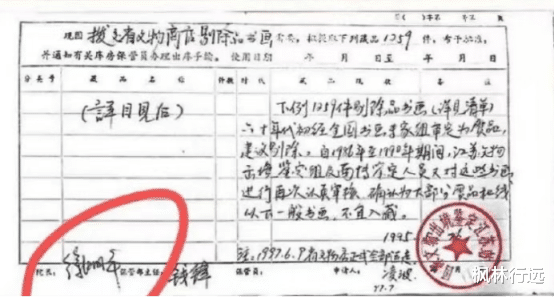 现因 拨交省文物商店剔除品书画 需要，拟提取下列藏品 1259 件，希予批准，
并通知有关库房保管员办理出库手续。使用日期 年 月 日至 年 月 日
分类号 藏品名称 件数 时代 藏品现状 备注
(详目见后)
下列1259件剔除品书画(详见清单)
六十年代初经全国书画专家组审定为
建议剔除。自 年至1990年期间，江苏文物
出境鉴定组及南博 人员又对这些书画
进行再次认真审核，确认为大部分
以下一般书画，不宜入藏。
1995
注：1997.6.9
院长： 保管部主任： 保管员： 申请人：
97.7
文物出境鉴定江苏
枫林行远